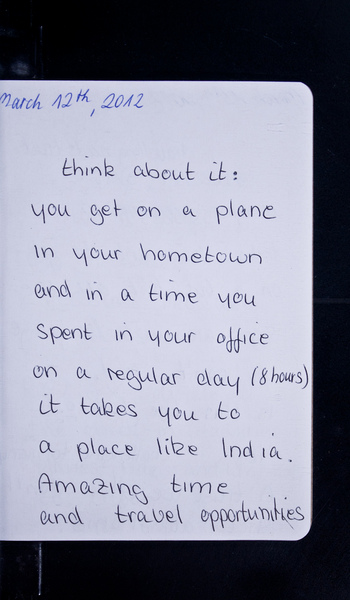 March 12th, 2012
think about it:
you get on a plane
in your hometown
and in a time you
spent in your office
on a regular day (8 hours)
it takes you to
a place like India.
Amazing time
and travel opportunities